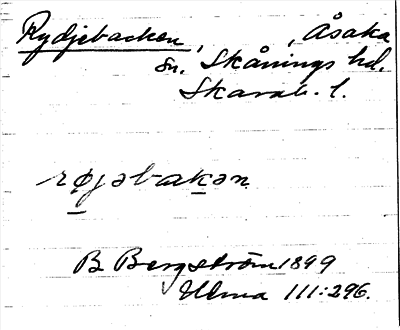 Rydjebacken, , Åsaka
sn. Skånings hd.
Skarab. l.
røjəbakən
B. Bergström 1899
Ulma 111:296.